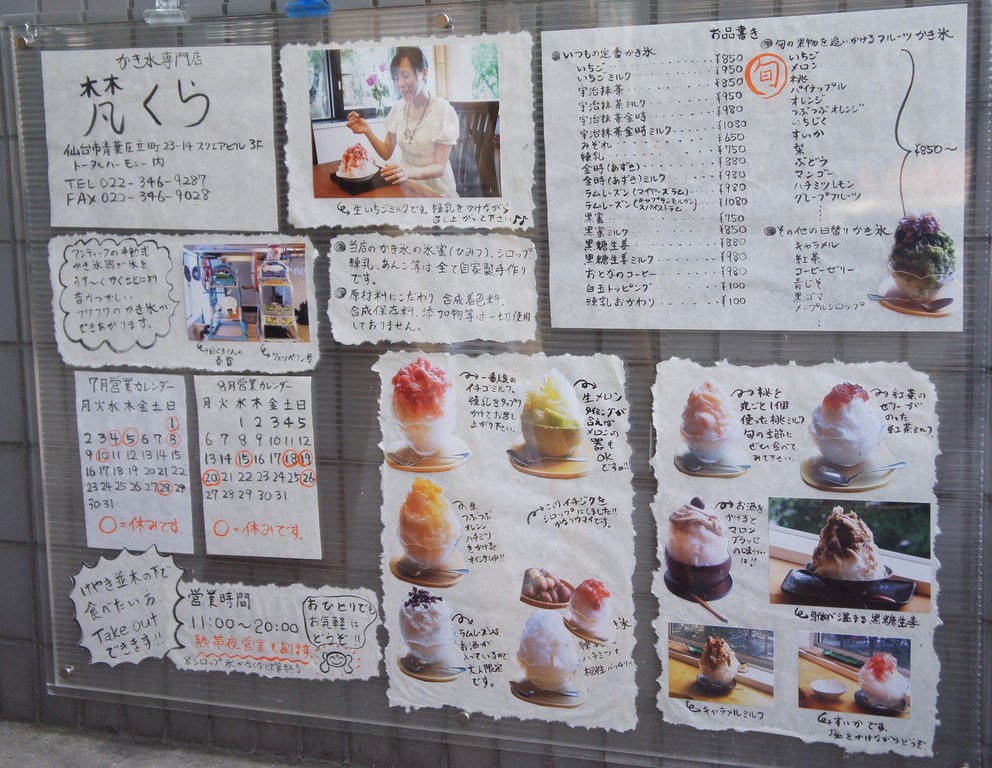 かき氷専門店
梵くら
仙台市青葉区立町23-14スクエアビル3F
トータルハーモニー内
TEL 022-346-9287
FAX 022-346-9028
生いちごミルクです。練乳をかけながら
召し上がって下さい♪♪
アンティークの手動式
かき氷器で氷を
うす〜くかくことにより
昔なつかしい
フワフワのかき氷が
できあがります。
白くまくんの
ツェッペリン号
◎当店のかき氷の氷蜜(ひみつ)、シロップ
練乳、あんこ等は全て自家製手作り
です。
◎原材料にこだわり、合成着色料、
合成保存料、添加物等は一切使用
しておりません。
お品書き
◎いつもの定番かき氷
いちご ¥850
いちごミルク ¥950
宇治抹茶 ¥850
宇治抹茶ミルク ¥950
宇治抹茶金時 ¥980
宇治抹茶金時ミルク ¥1080
みぞれ ¥650
練乳 ¥750
金時(あずき) ¥880
金時(あずき)ミルク ¥980
ラムレーズン(マイヤーズラム) ¥980
ラムレーズン(キャプテンモルガンスパイストラム) ¥1080
黒蜜 ¥750
黒蜜ミルク ¥850
黒糖生姜 ¥880
黒糖生姜ミルク ¥980
おとなのコーヒー ¥980
白玉トッピング ¥100
練乳おかわり ¥100
旬
◎旬の果物を追いかけるフルーツかき氷
いちご
メロン
桃
パイナップル
オレンジ
つぶつぶオレンジ
いちじく
すいか
梨
ぶどう
マンゴー
ハチミツレモン
グレープフルーツ
¥850〜
◎その他の日替りかき氷
キャラメル
紅茶
コーヒーゼリー
青じそ
黒ゴマ
メープルシロップ
7月営業カレンダー
月火水木金土日
1
2 3 4 5 6 7 8
9 10 11 12 13 14 15
16 17 18 19 20 21 22
23 24 25 26 27 28 29
30 31
○=休みです
8月営業カレンダー
月火水木金土日
1 2 3 4 5
6 7 8 9 10 11 12
13 14 15 16 17 18 19
20 21 22 23 24 25 26
27 28 29 30 31
○=休みです。
けやき並木の下で
食べたい方
Take out
できます!!
営業時間
11:00〜20:00
熱帯夜営業もあります。
※シロップ、氷がなくなり次第終了
おひとりでも
お気軽に
どうぞ!!
一番人気の
イチゴミルク。
練乳をタップリ
かけてお召し
上がり下さい。
生メロン
タイミングが
合えば
メロンの
器も
OK
ですョ!!
生
つぶつぶ
オレンジ
ハチミツ
をかけると
オイシサUP!!
このイチジクを
シロップにしました!!
かなりウマイです。
ラムレーズンは
お酒が
入っているので
大人限定
です。
ハチミツも
相性バッチリ
桃を
丸ごと1個
使った桃ミルク
旬の季節に
ぜひ食べて
みて下さい。
紅茶の
ゼリーが
のった
紅茶ミルク
お酒を
かけると
マロン
グラッセ
の味わい
に!!
身体が温まる黒糖生姜
キャラメルミルク
すいかです。
塩をかけながらどうぞ。